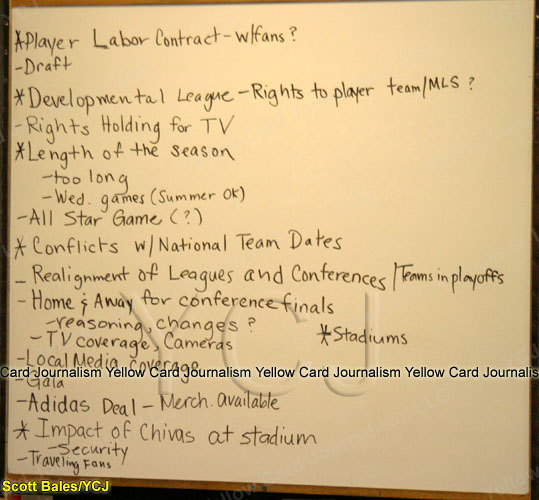 *Player Labor Contract - w/fans?
-Draft
*Developmental League - Rights to player team/MLS?
-Rights Holding for TV
*Length of the season
-too long
-Wed. games (Summer Ok)
-All Star Game (?)
* Conflicts w/National Team Dates
- Realignment of Leagues and Conferences/Teams in playoffs
-Home & Away for conference finals
-reasoning, changes?
-TV coverage, Cameras
*Stadiums
-Local Media coverage
Card Journalism Yellow Card Journalism Yellow Card Journalism Yellow Card Journalis
-Gala
-Adidas Deal - Merch. available
* Impact of Chivas at stadium
-Security
-Traveling Fans
YCJ
Scott Bales/YCJ